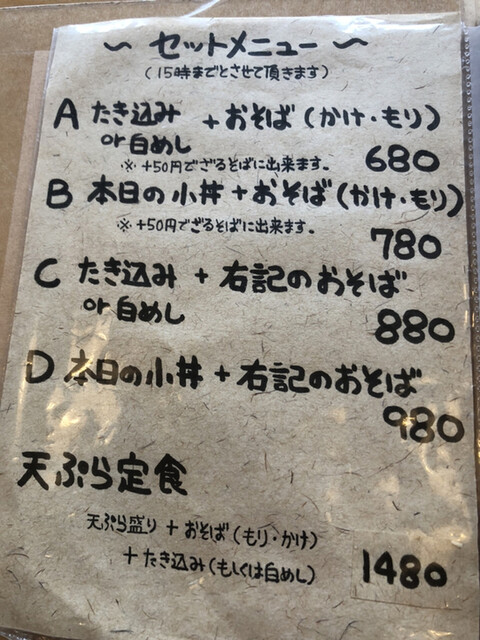 〜 セットメニュー 〜
(15時までとさせて頂きます)
A たき込み + おそば (かけ・もり)
or 白めし
※ +50円でざるそばに出来ます。 680
B 本日の小丼 + おそば (かけ・もり)
※ +50円でざるそばに出来ます。
780
C たき込み + 右記のおそば
or 白めし
880
D 本日の小丼 + 右記のおそば
980
天ぷら定食
天ぷら盛り + おそば (もり・かけ)
+ たき込み (もしくは白めし) 1480